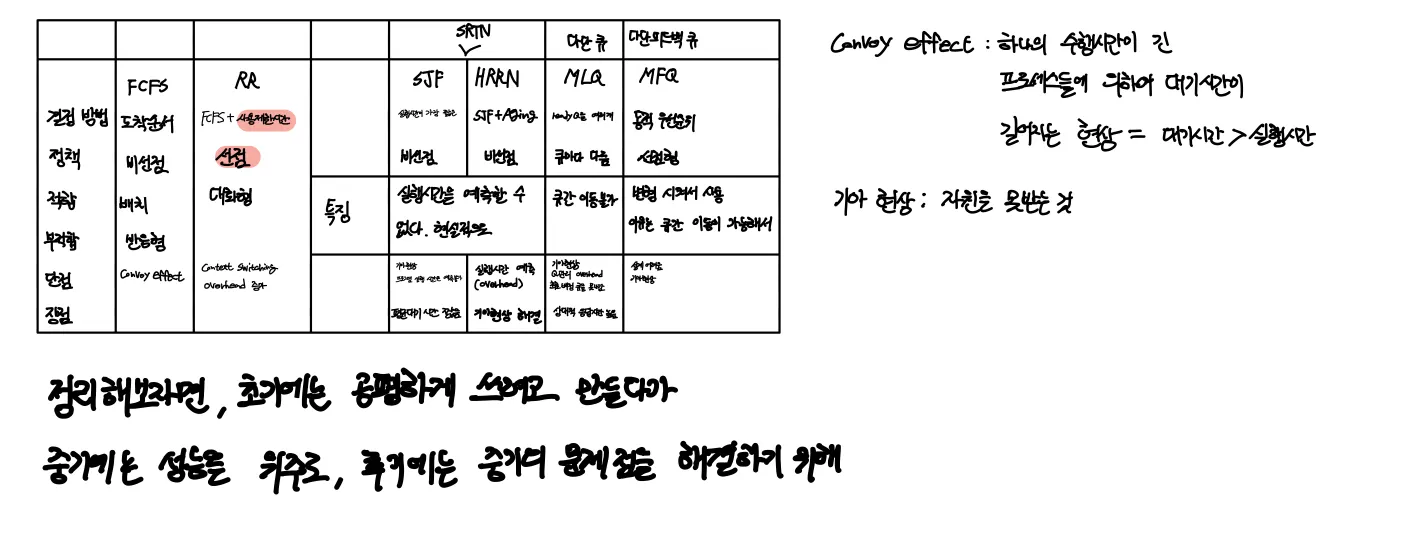 SRTN 다단 큐 다단피드백 큐
FCFS RR SJF HRRN MLQ MFQ
결정 방법 도착순서 FCFS + 사용제한시간 실행시간이 가장 짧은 SJF+Aging 동적 우선순위
정책 비선점 선점 비선점 비선점 큐마다 다름 선점형
적합 배치 대화형 특징 실행시간을 예측할 수 큐간 이동불가 변형 시켜서 사용
부적합 반응형 없다. 현실적으로 이유는 큐간 이동이 가능해서
단점 Convoy effect Context Switching 기아현상 실행시간 예측 기아현상
overhead 증가 (overhead) overhead 기아현상
장점 평균대기 시간 짧음 기아현상 해결
Convoy effect : 하나의 수행시간이 긴
프로세스들에 의하여 대기시간이
길어지는 현상 = 대기시간 > 실행시간
기아 현상 : 자원을 못받는 것
정리해보자면, 초기에는 공평하게 쓰려고 만들다가
중기에는 성능을 위주로, 후기에는 중기의 문제점을 해결하기 위해